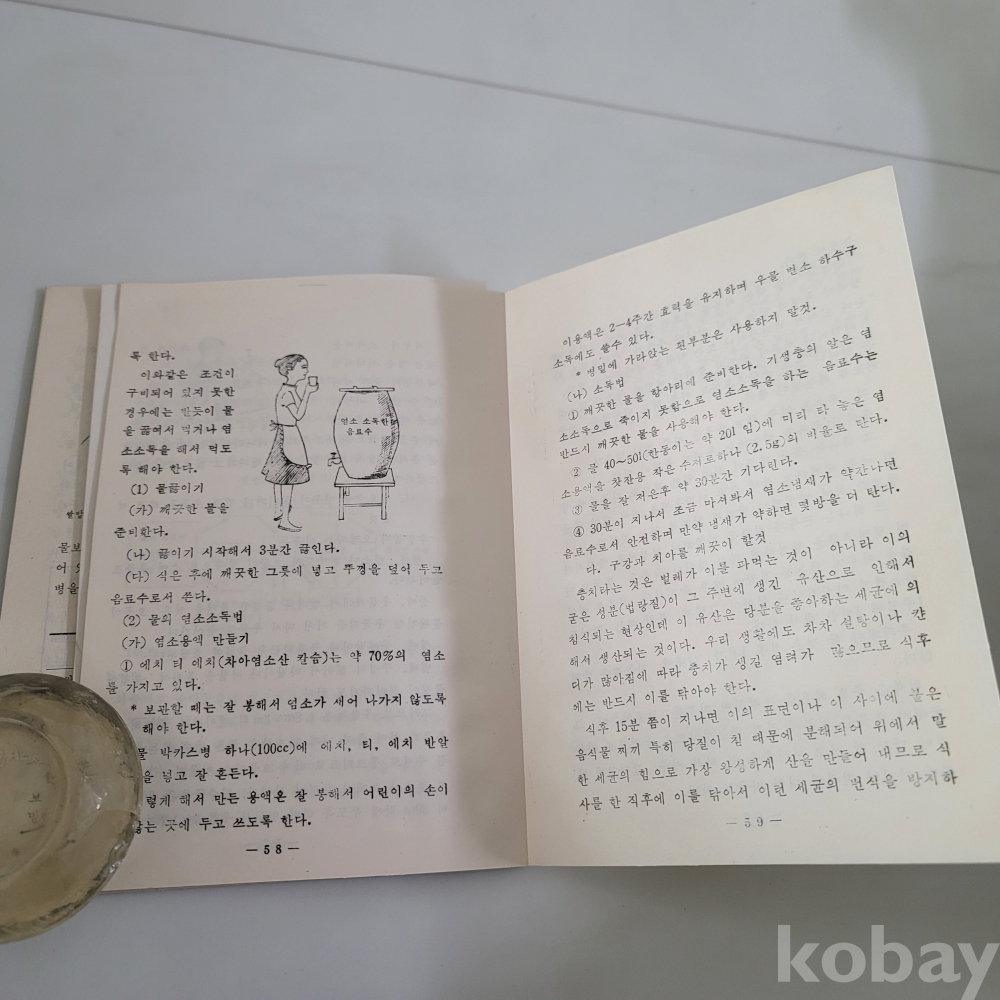 록 한다.
이와같은 조건이
구비되어 있지 못한
경우에는 반듯이 물
을 끓여서 먹거나 염
소소독을 해서 먹도
록 해야 한다.
(1) 물끓이기
(가) 깨끗한 물을
준비한다.
(나) 끓이기 시작해서 3분간 끓인다.
(다) 식은 후에 깨끗한 그릇에 넣고 뚜껑을 덮어 두고
음료수로서 쓴다.
(2) 물의 염소소독법
(가) 염소용액 만들기
① 에치 티 에치(차아염소산 칼슘)는 약 70%의 염소
를 가지고 있다.
* 보관할 때는 잘 봉해서 염소가 새어 나가지 않도록
해야 한다.
물 박카스병 하나(100cc)에 에치, 티, 에치 반알
을 넣고 잘 흔든다.
렇게 해서 만든 용액은 잘 봉해서 어린이의 손이
않는 곳에 두고 쓰도록 한다.
— 58 —
염소 소독한
음료수
물보
어
병을
이용액은 2—4주간 효력을 유지하며 우물 변소 하수구
소독에도 쓸수 있다.
* 병밑에 가라앉는 흰부분은 사용하지 말것.
(나) 소독법
① 깨끗한 물을 항아리에 준비한다. 기생충의 알은 염
소소독으로 죽이지 못함으로 염소소독을 하는 음료수는
반드시 깨끗한 물을 사용해야 한다.
② 물 40~50l(한동이는 약 20l 임)에 미리 타 놓은 염
소용액을 찻잔용 작은 수저로하나 (2.5g)의 비율로 탄다.
③ 물을 잘 저은후 약 30분간 기다린다.
④ 30분이 지나서 조금 마셔봐서 염소냄새가 약간나면
음료수로서 안전하며 만약 냄새가 약하면 몇방울 더 탄다.
다. 구강과 치아를 깨끗이 할것
충치라는 것은 벌레가 이를 파먹는 것이 아니라 이의
굳은 성분(법랑질)이 그 주변에 생긴 유산으로 인해서
침식되는 현상인데 이 유산은 당분을 좋아하는 세균에 의
해서 생산되는 것이다. 우리 생활에도 차차 설탕이나 캰
디가 많아짐에 따라 충치가 생길 염려가 많으므로 식후
에는 반드시 이를 닦아야 한다.
식후 15분 쯤이 지나면 이의 표면이나 이 사이에 붙은
음식물 찌끼 특히 당질이 침 때문에 분해되어 위에서 말
한 세균의 힘으로 가장 왕성하게 산을 만들어 내므로 식
사를 한 직후에 이를 닦아서 이런 세균의 번식을 방지하
— 59 —
kobay